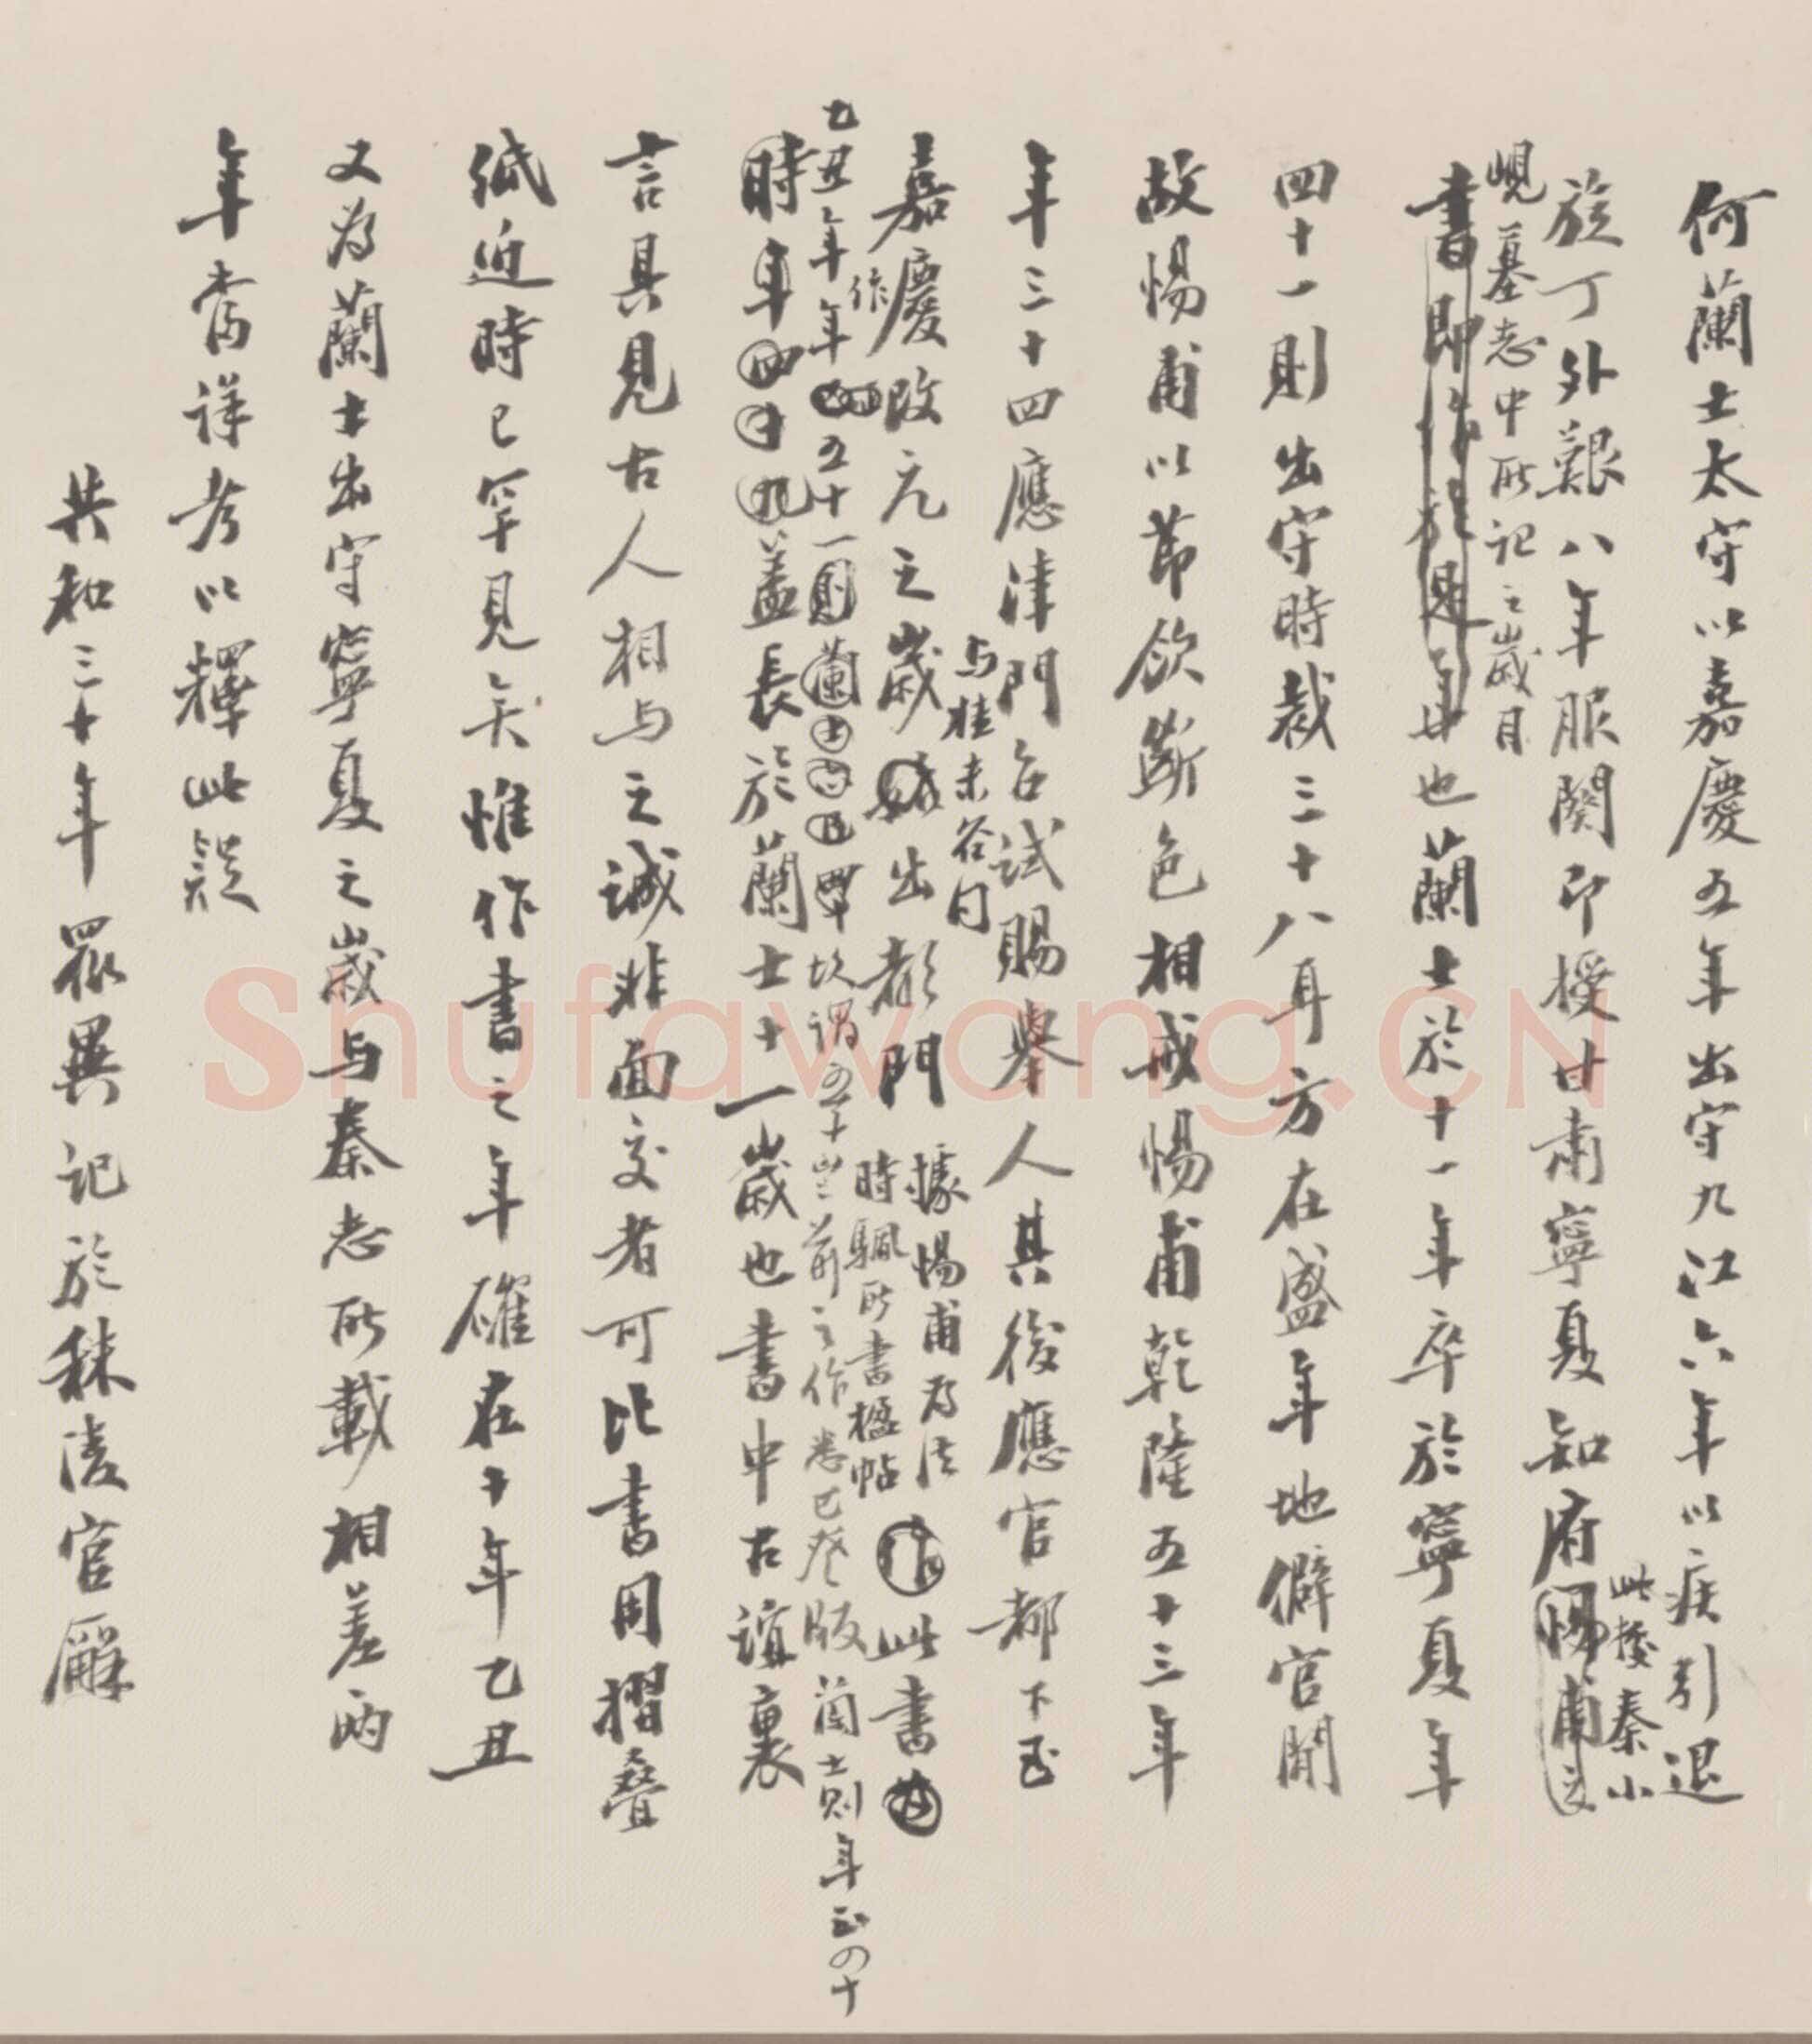 何蘭士太守以嘉慶五年出守九江六年以疾引退
旋丁外艱八年服闋即授甘肅寧夏知府惕甫文
此據秦小
峴墓志中所記之歲月
書即作於是年也蘭士於十一年卒於寧夏年
四十一則出守時裁三十八耳方在盛年地僻官閒
故惕甫以節飲斷色相戒惕甫乾隆五十三年
年三十四應津門召試賜舉人其後應官都下至
與桂未谷同
嘉慶改元之歲出都門
據惕甫為法
時颿所書楹帖
作此書
作
乙丑年年五十一則蘭士四十故謂五十豈前之作卷已登版蘭士則年正四十
時年四十九蓋長於蘭士十一歲也書中古誼裏
言具見古人相与之誠非面交者可比書用摺疊
紙近時已罕見矣惟作書之年確在十年乙丑
又為蘭士出守寧夏之歲与秦志所載相差兩
年當詳考以釋此疑
共和三十年眾異記於秣陵官廨
Shufawang.CN